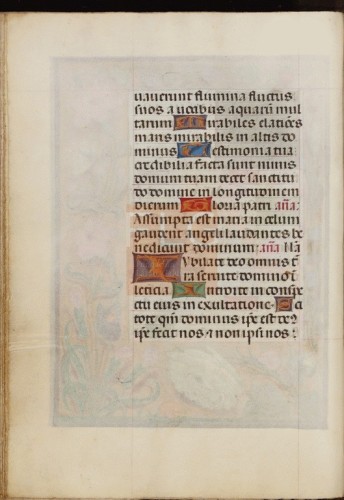 vaverunt flumina fluctus
suos a vocibus aquarum mul
tarum Mirabiles elationes
maris mirabilis in altis do
minus Testimonia tua
credibilia facta sunt nimis
domum tuam decet sanctitu
do domine in longitudinem
dierum Gloria patri aña:
Assumpta est maria in celum
gaudent angeli laudantes be
nedicunt dominum: aña
Iubilate deo omnis t̄
ra servite domino ī
leticia Introite in conspe
ctu eius in exultatione Sc
itote qm̄ dominus ip̄e est de9
ip̄e fecit nos & non ipsi nos: